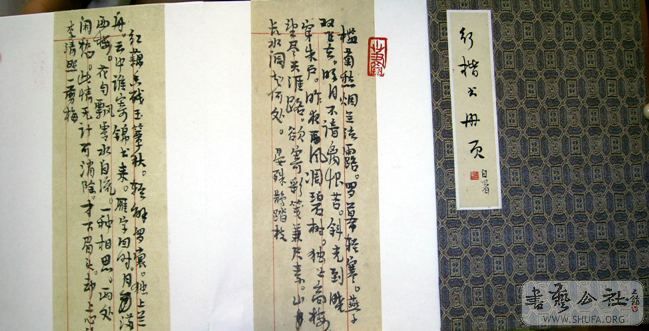 行楷书册页
自署
槛菊愁烟兰泣露。罗幕轻寒。燕子
双飞去。明月不谙离恨苦。斜光到晓
穿朱户。昨夜西风凋碧树。独上高楼
望尽天涯路。欲寄彩笺兼尺素。山
长水阔知何处。晏殊鹊踏枝
红藕香残玉簟秋。轻解罗裳。独上兰
舟。云中谁寄锦书来。雁字回时。月满
西楼。花自飘零水自流。一种相思。两处
闲愁。此情无计可消除。才下眉头。却上心头
李清照一剪梅
書藝公社
WWW.SHUFA.ORG